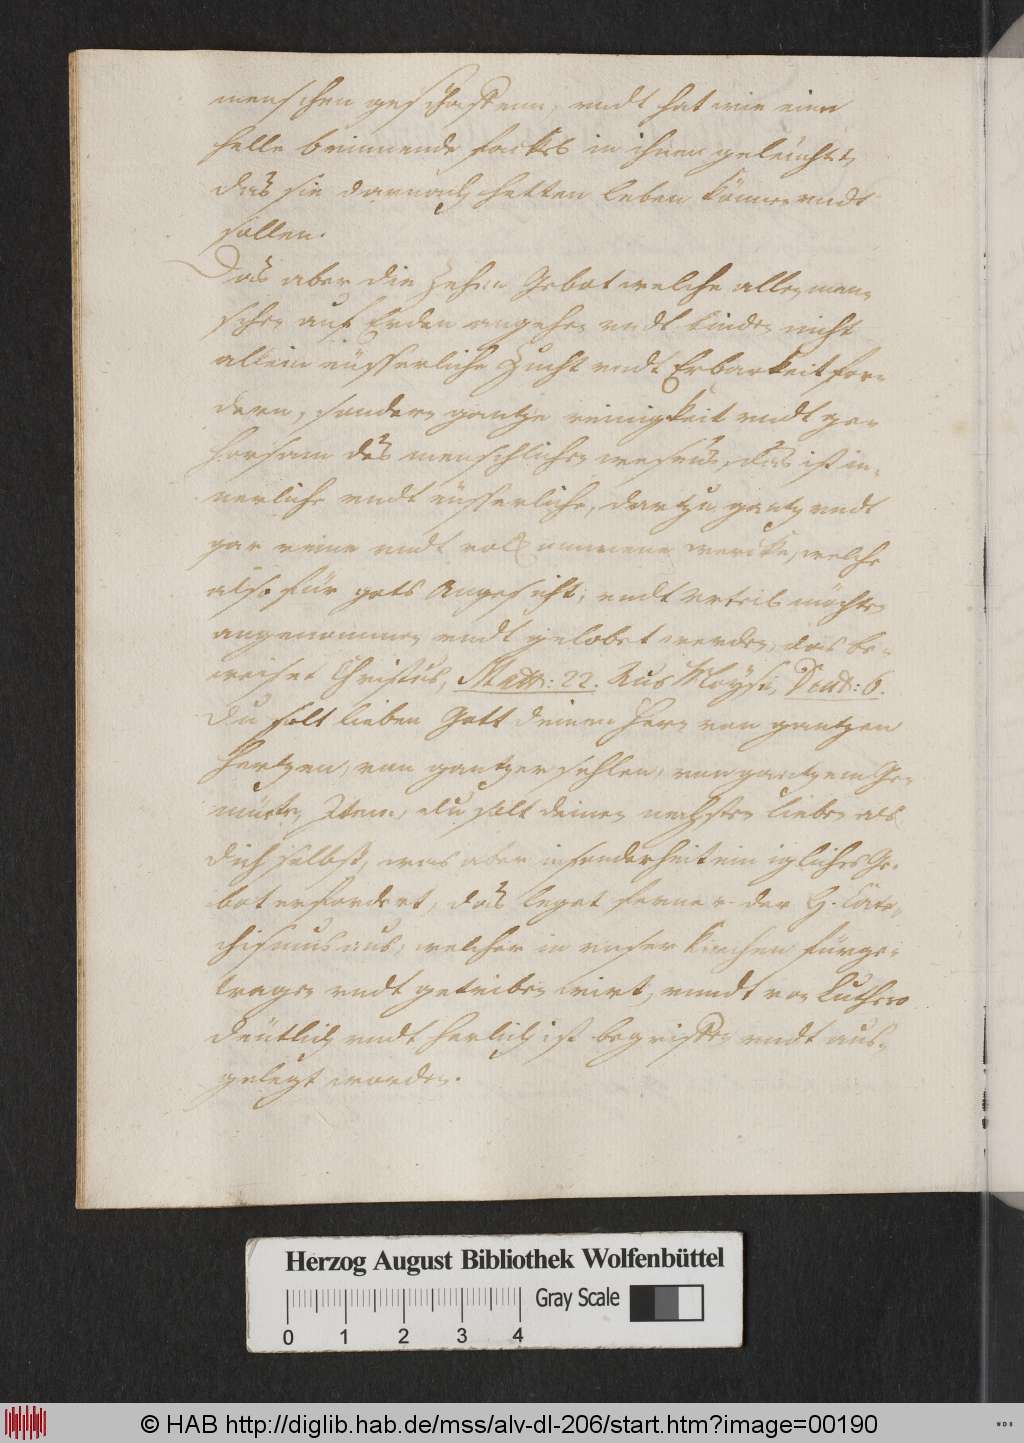 menschen geschaffenn, undt hat wie eine
helle brinnende fackel in ihnen geleuchtet,
das sie darnach hetten leben können undt
sollen.
Das aber die Zehen Gebot welche alle men-
schen auf Erden angehen undt binden nicht
allein eüsserliche Zucht undt Erbarkeit for-
dern, sondern gantze reinigkeit undt ge-
horsam des menschlichen wesens, das ist in-
nerliche undt eüsserliche, dartzu gantz undt
gar reine undt volkommene wercke, welche
also für gots Angesicht, undt Urteil möchten
angenommen undt gelobet werden, das be-
weiset Christus, Matt: 22. Aus Moysi, Deut: 6.
Du solt lieben Gott deinen Hern von gantzen
Hertzen, von gantzer sehlen, von gantzem Ge-
müete, Item, du solt deinen nechsten lieben als
dich selbst, was aber insonderheit ein igliches Ge-
bot erfordert, das leget ferner der H. Cate-
chismus aus, welcher in unser kirchen fürge-
tragen undt getrieben wirt, unndt von Luthero
deütlich undt herlich ist begriffen undt aus-
gelegt worden.
Herzog August Bibliothek Wolfenbüttel
Gray Scale
0 1 2 3 4
© HAB http://diglib.hab.de/mss/alv-dl-206/start.htm?image=00190